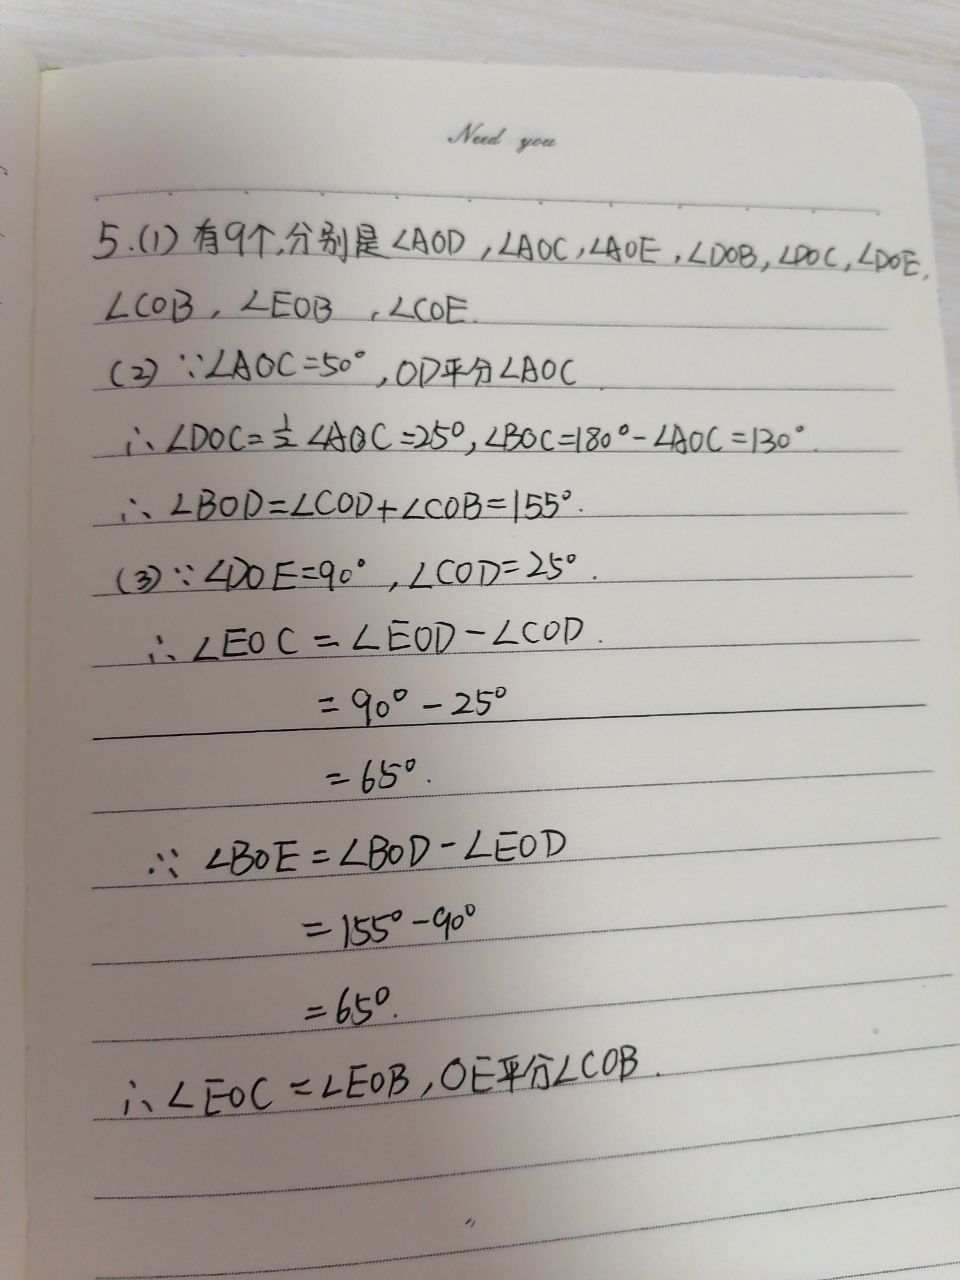 Need you
5.(1) 有9个,分别是∠AOD,∠AOC,∠AOE,∠DOB,∠DOC,∠DOE,
∠COB,∠EOB,∠COE.
(2) ∵∠AOC=50°,OD平分∠AOC
∴∠DOC=½∠AOC=25°,∠BOC=180°-∠AOC=130°.
∴∠BOD=∠COD+∠COB=155°.
(3)∵∠DOE=90°,∠COD=25°.
∴∠EOC=∠EOD-∠COD.
=90°-25°
=65°.
∵∠BOE=∠BOD-∠EOD
=155°-90°
=65°.
∴∠EOC=∠EOB,OE平分∠COB.